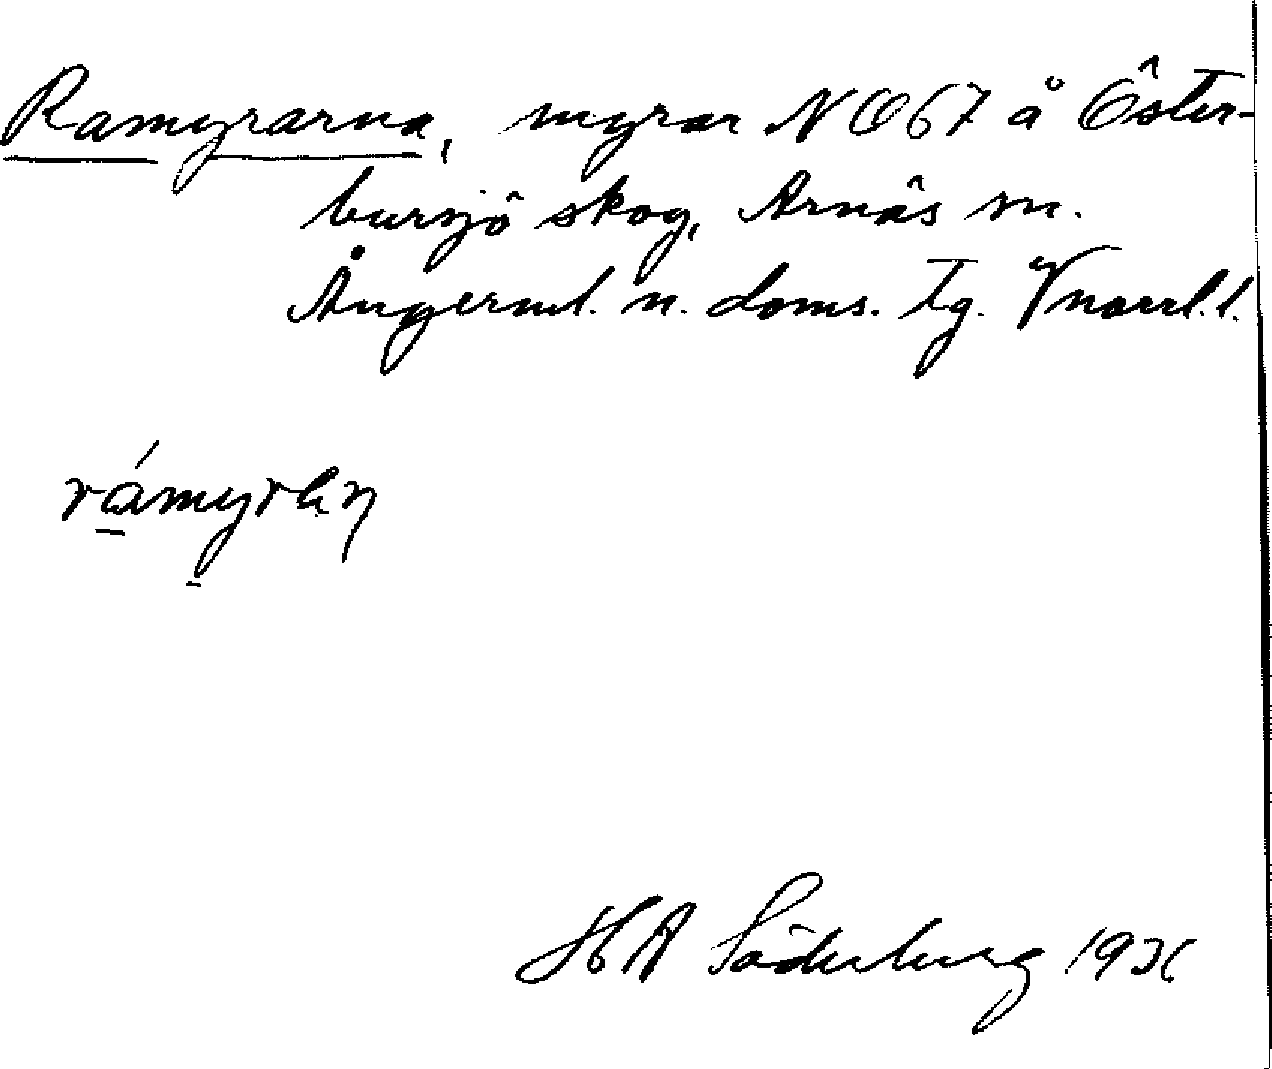 Ramyrarna, myrar NO67 å Öster-
bursjö skog, Arnäs sn.
Ångerml. n. doms. tg. Vnorrl. l.
rámyran
HA Söderberg 193